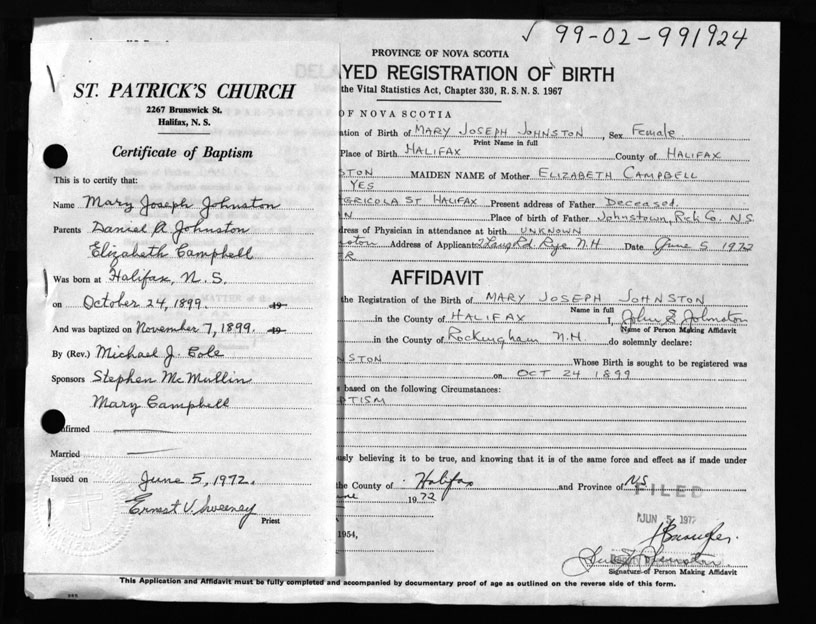 99-02-991924
ST. PATRICK'S CHURCH
2267 Brunswick St.
Halifax, N. S.
Certificate of Baptism
This is to certify that:
Name Mary Joseph Johnston
Parents Daniel A. Johnston
Elizabeth Campbell
Was born at Halifax, N. S.
on October 24, 1899. 19
And was baptized on November 7, 1899. 19
By (Rev.) Michael J. Cole
Sponsors Stephen McMullin
Mary Campbell
Confirmed
Married
Issued on June 5, 1972.
Ernest V. Sweeney
Priest
PROVINCE OF NOVA SCOTIA
DELAYED REGISTRATION OF BIRTH
the Vital Statistics Act, Chapter 330, R. S. N. S. 1967
OF NOVA SCOTIA
ation of Birth of MARY JOSEPH JOHNSTON, Sex Female
Print Name in full
Place of Birth HALIFAX County of HALIFAX
STON MAIDEN NAME of Mother ELIZABETH CAMPBELL
YES
AGRICOLA ST HALIFAX Present address of Father Deceased.
Place of birth of Father Johnstown, Rich Co. N.S.
dress of Physician in attendance at birth UNKNOWN
ston Address of Applicant Rd. Rye N.H. Date June 5 1972
ER
AFFIDAVIT
the Registration of the Birth of MARY JOSEPH JOHNSTON
Name in full
in the County of HALIFAX I, John S Johnston
Name of Person Making Affidavit
in the County of Rockingham N.H. do solemnly declare:
NSTON Whose Birth is sought to be registered was
on OCT 24 1899
based on the following Circumstances:
PTISM
usly believing it to be true, and knowing that it is of the same force and effect as if made under
the County of Halifax and Province of N.S.
une 1972
FILED
JUN 5 1972
1954,
Signature of Person Making Affidavit
This Application and Affidavit must be fully completed and accompanied by documentary proof of age as outlined on the reverse side of this form.